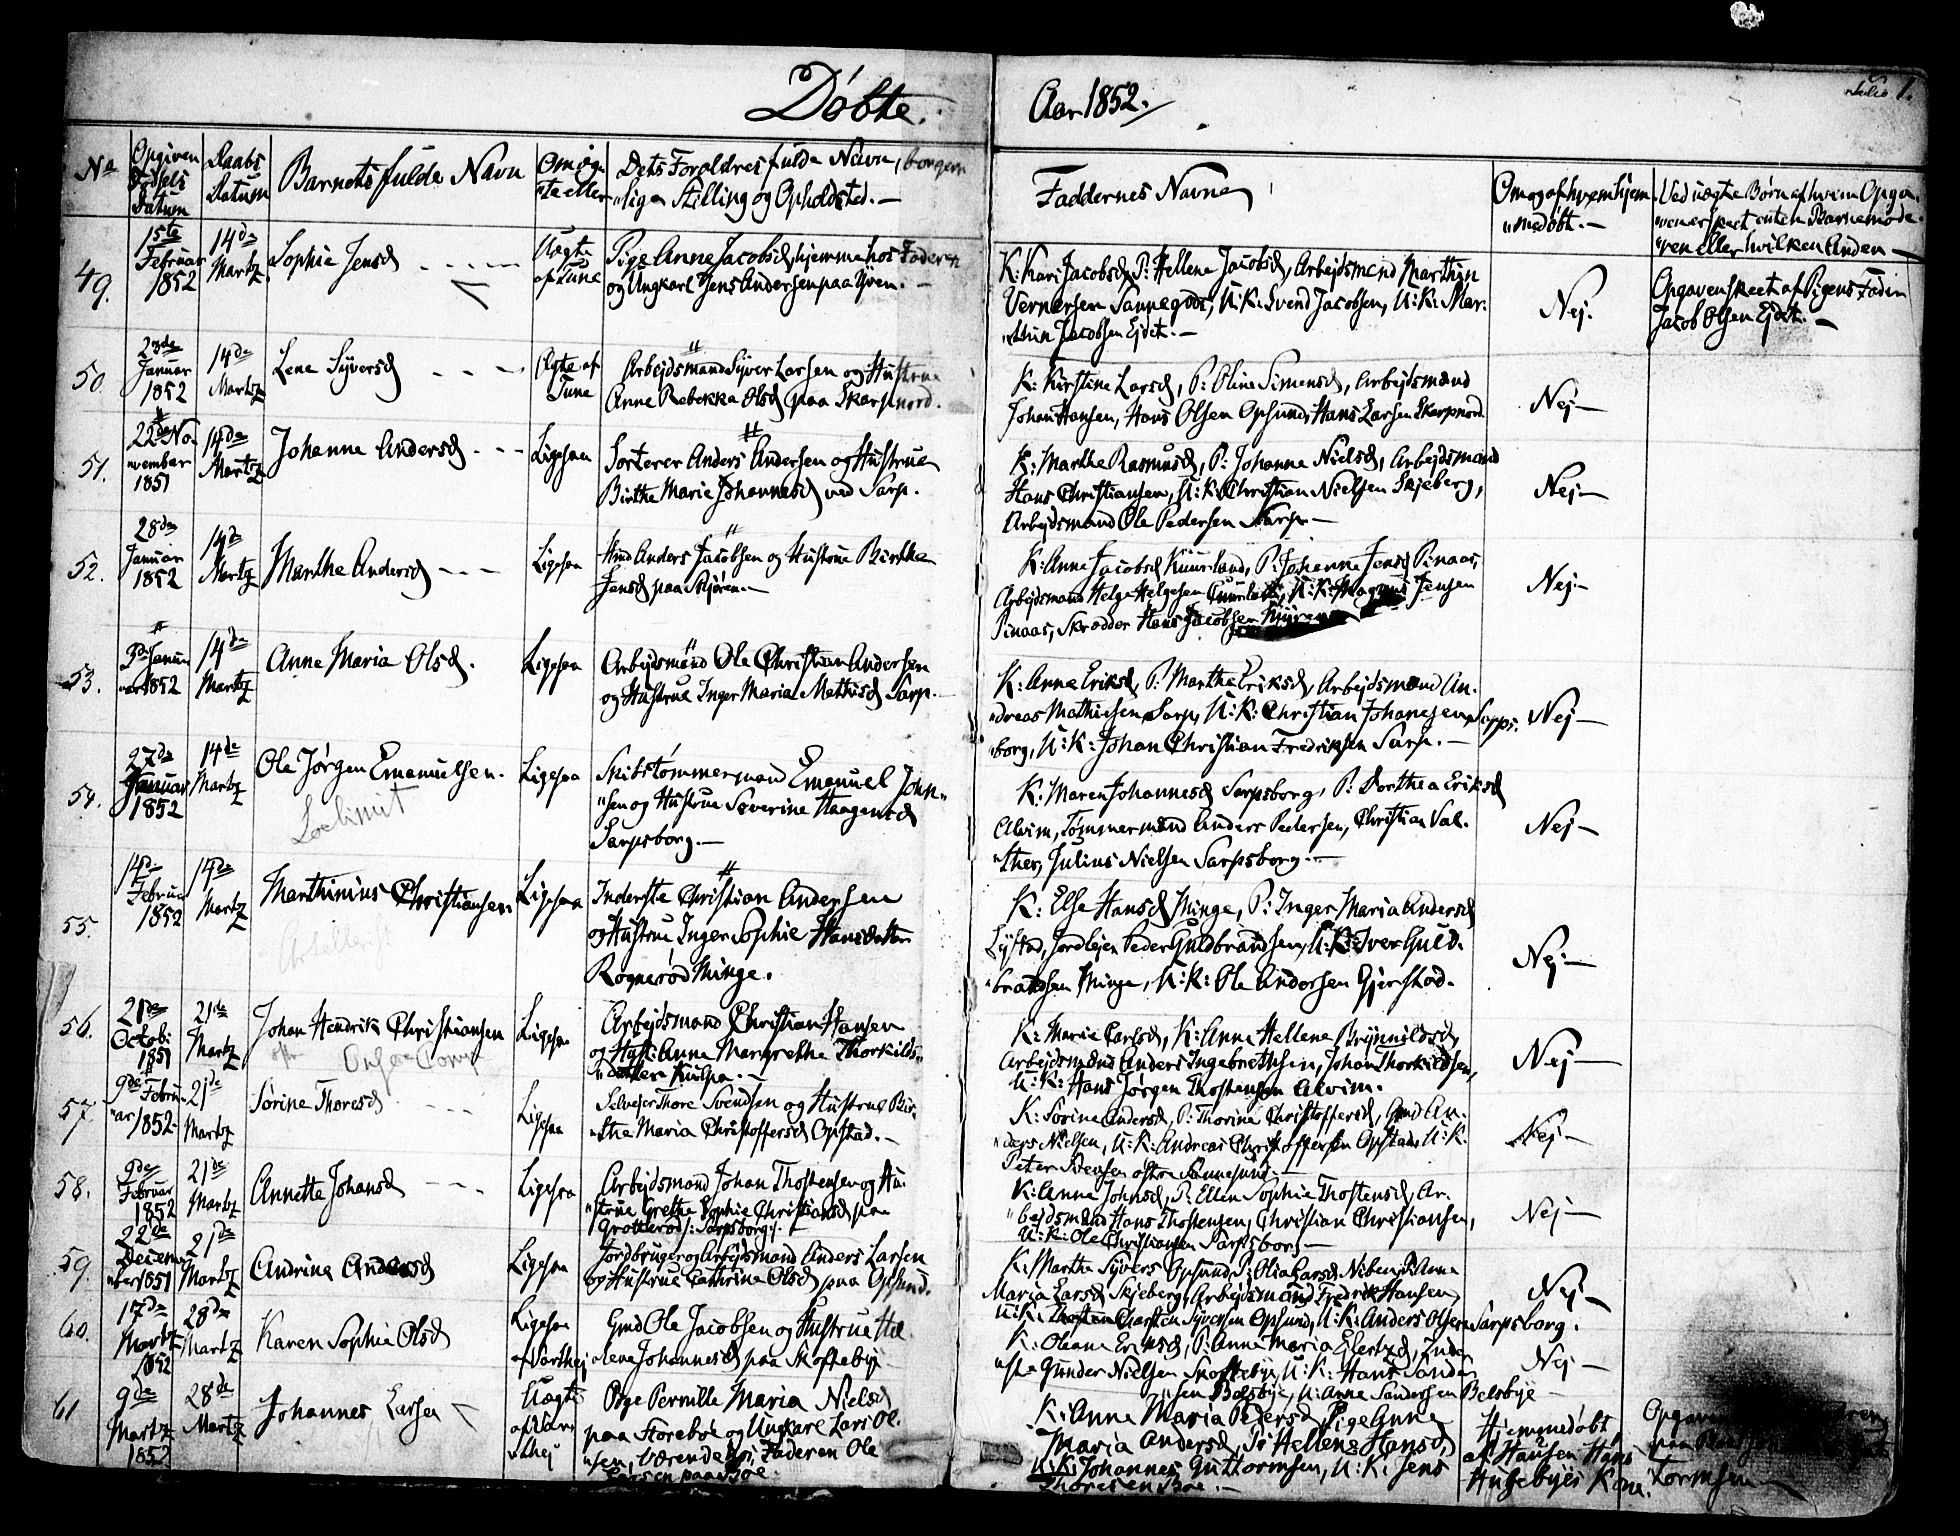 Døbte.
Aar 1852.
1.
No
Opgiven Fødsels Datum
Daabs Datum
Barnets fulde Navn
Om ægte eller
Dets Forældres fulde Navn, borger-
"lige Stilling og Opholdsted.
Faddernes Navne
Om og af hvem hjem-
"medøbt.
Ved uægte Børn af hvem Opga-
"ven er skeet enten Barnemode-
"ren eller hvilken Anden
49.
1ste Februar 1852
14de Martz
Sophie Jensd
Uægte af Tune
Pige Anne Jacobsd, hjemme hos Faderen
og Ungkarl Jens Andersen paa
K: Kari Jacobsd, P: Hellene Jacobsd, Arbejdsmand Marthin
Vernersen Sannegods, U:K: Svend Jacobsen, U:K: Mar-
"thin Jacobsen Ejdet.
Nej.
Opgaven skeet af Pigens Fader
Jacob Olsen Ejdet.
50.
23de Januar 1852
14de Martz
Lene Syversd
Ægte af Tune
Arbejdsmand Syver Larsen og Hustrue
Anne Rebekka Olsd paa Skarpnord.
K: Kirstine Larsd, P: Oline Simensd, Arbejdsmænd
Johan Hansen, Hans Olsen Opsund, Hans Larsen Skarpnord
Nej
51.
22de November 1851
14de Martz
Johanne Andersd
Ligesaa
Sorterer Anders Andersen og Hustrue
Birthe Marie Johannesd ved Sarp.
K: Marthe Rasmusd, P: Johanne Nielsd, Arbejdsmand
Hans Christiansen, U:K: Christian Nielsen Skjeberg,
Arbejdsmand Ole Pedersen Sarp
Nej
52.
28de Januar 1852
14de Martz
Marthe Andersd
Ligesaa
Hmd Anders Jacobsen og Hustrue Birthe
Jensd paa
K: Anne Jacobsd Kuurland, P: Johanne Jensd Pinaas,
Arbejdsmand Helge Helgesen Kuurland, U:K: Magnus Jensen
Pinaas, Skrædder Hans Jacobsen
Nej
53.
3de Januar 1852
14de Martz
Anne Maria Olsd.
Ligesaa
Arbejdsmand Ole Christian Andersen
og Hustrue Inger Maria Mathisd Sarp.
K: Anne Eriksd, P: Marthe Eriksd, Arbejdsmænd An-
"dreas Mathiesen Sarp, U:K: Christian Johanesen Sarps-
borg, U:K: Johan Christian Fredriksen Sarp.
Nej
54.
27de Januar 1852
14de Martz
Ole Jørgen Emanuelsen.
Ligesaa
Skibstømmermand Emanuel John-
"sen og Hustrue Severine Haagensd
Sarpsborg.
K: Maren Johannesd Sarpsborg, P: Dorthea Eriksd
Alvim, Tømmermænd Anders Pedersen, Christian Val-
"ther, Julius Nielsen Sarpsborg.
Nej
55.
14de Februar 1852
14de Martz
Marthinius Christiansen
Ligesaa
Inderste Christian Andersen
og Hustrue Inger Sophie Hansdatter
Rognerød Minge.
K: Else Hansd Minge, P: Inger Maria Andersd
Lystad, Jordlejer Peder Guldbrandsen, U:K: Iver Guld-
"brandsen Minge, U:K: Ole Andersen Gjerstad.
Nej
56.
21de Octobr 1851
21de Martz
Johan Hendrik Christiansen
Ligesaa
Arbejdsmand Christian Hansen
og Hust: Anne Margrethe Thorkilds-
"datter Kulpe.
K: Marie Carlsd, K: Anne Hellene Brynnildsd,
Arbejdsmænd Anders Ingebrethsen, Johan Thorkildsen,
U:K: Hans Jørgen Thostensen Alvim.
Nej
57.
9de Februar 1852.
21de Martz
Sørine Thoresd
Ligesaa
Selvejer Thore Svendsen og Hustrue Bir-
"the Maria Christoffersd Opstad.
K: Sørine Andersd, P: Thorine Christoffersd, Gmd An-
"ders Nielsen, U:K: Andreas Christoffersen Opstad, U:K:
Peter Svensen østre Sannesund.
Nej
58.
9de Februar 1852
21de Martz
Annette Johansd
Ligesaa
Arbejdsmand Johan Thostensen og Hu-
"strue Grethe Sophie Christiansd paa
Grotterød /: Sarpsborg :/
K: Anne Johnsd, P: Ellen Sophie Thostensd, Ar-
"bejdsmænd Hans Thostensen, Christian Christiansen,
U:K: Ole Christiansen Sarpsborg
Nej
59.
22de December 1851
21de Martz
Andrine Andersd
Ligesaa
Jordbruger og Arbejdsmand Anders Larsen
og Hustrue Cathrine Olsd paa Opsund.
K: Marthe Syvers Opsund, P: Olia Larsd Niben, P: Anne
Maria Larsd Skjeberg, Arbejdsmænd Fredrik Hansen,
U:K: Thosten Carsten Syversen Opsund, U:K: Anders Olsen Sarpsborg.
Nej
60.
17de Martz 1852
28de Martz
Karen Sophie Olsd
Ligesaa af Varthej
Gmd Ole Jacobsen og Hustrue He-
"lene Johannesd paa Skoftebye
K: Oleane Eriksd, P: Anne Maria Ellertzd, Inder-
"ste Gunder Nielsen Skoftebye, U:K: Hans Sander-
"sen Bølsbye, U: Anne Sandersen Belsbye
Nej
61
9de Martz 1852
28de Martz
Johannes Larsen
Uægte af Varthej
Pige Pernille Maria Nielsd
paa Storebøe og Ungkarl Lars Ol-
"sen, værende hos Faderen Ole
Larsen paa Bøe.
K: Anne Maria Pedersd, Pige Anne
Maria Andersd, P: Hellene Hansd,
U:K: Johannes Guttormsen, U:K: Jens
Thoresen Bøe.
Hjemmedøbt
af Hansen Hans
Hugebyes Kone.
Opgaven
paa
tormsen